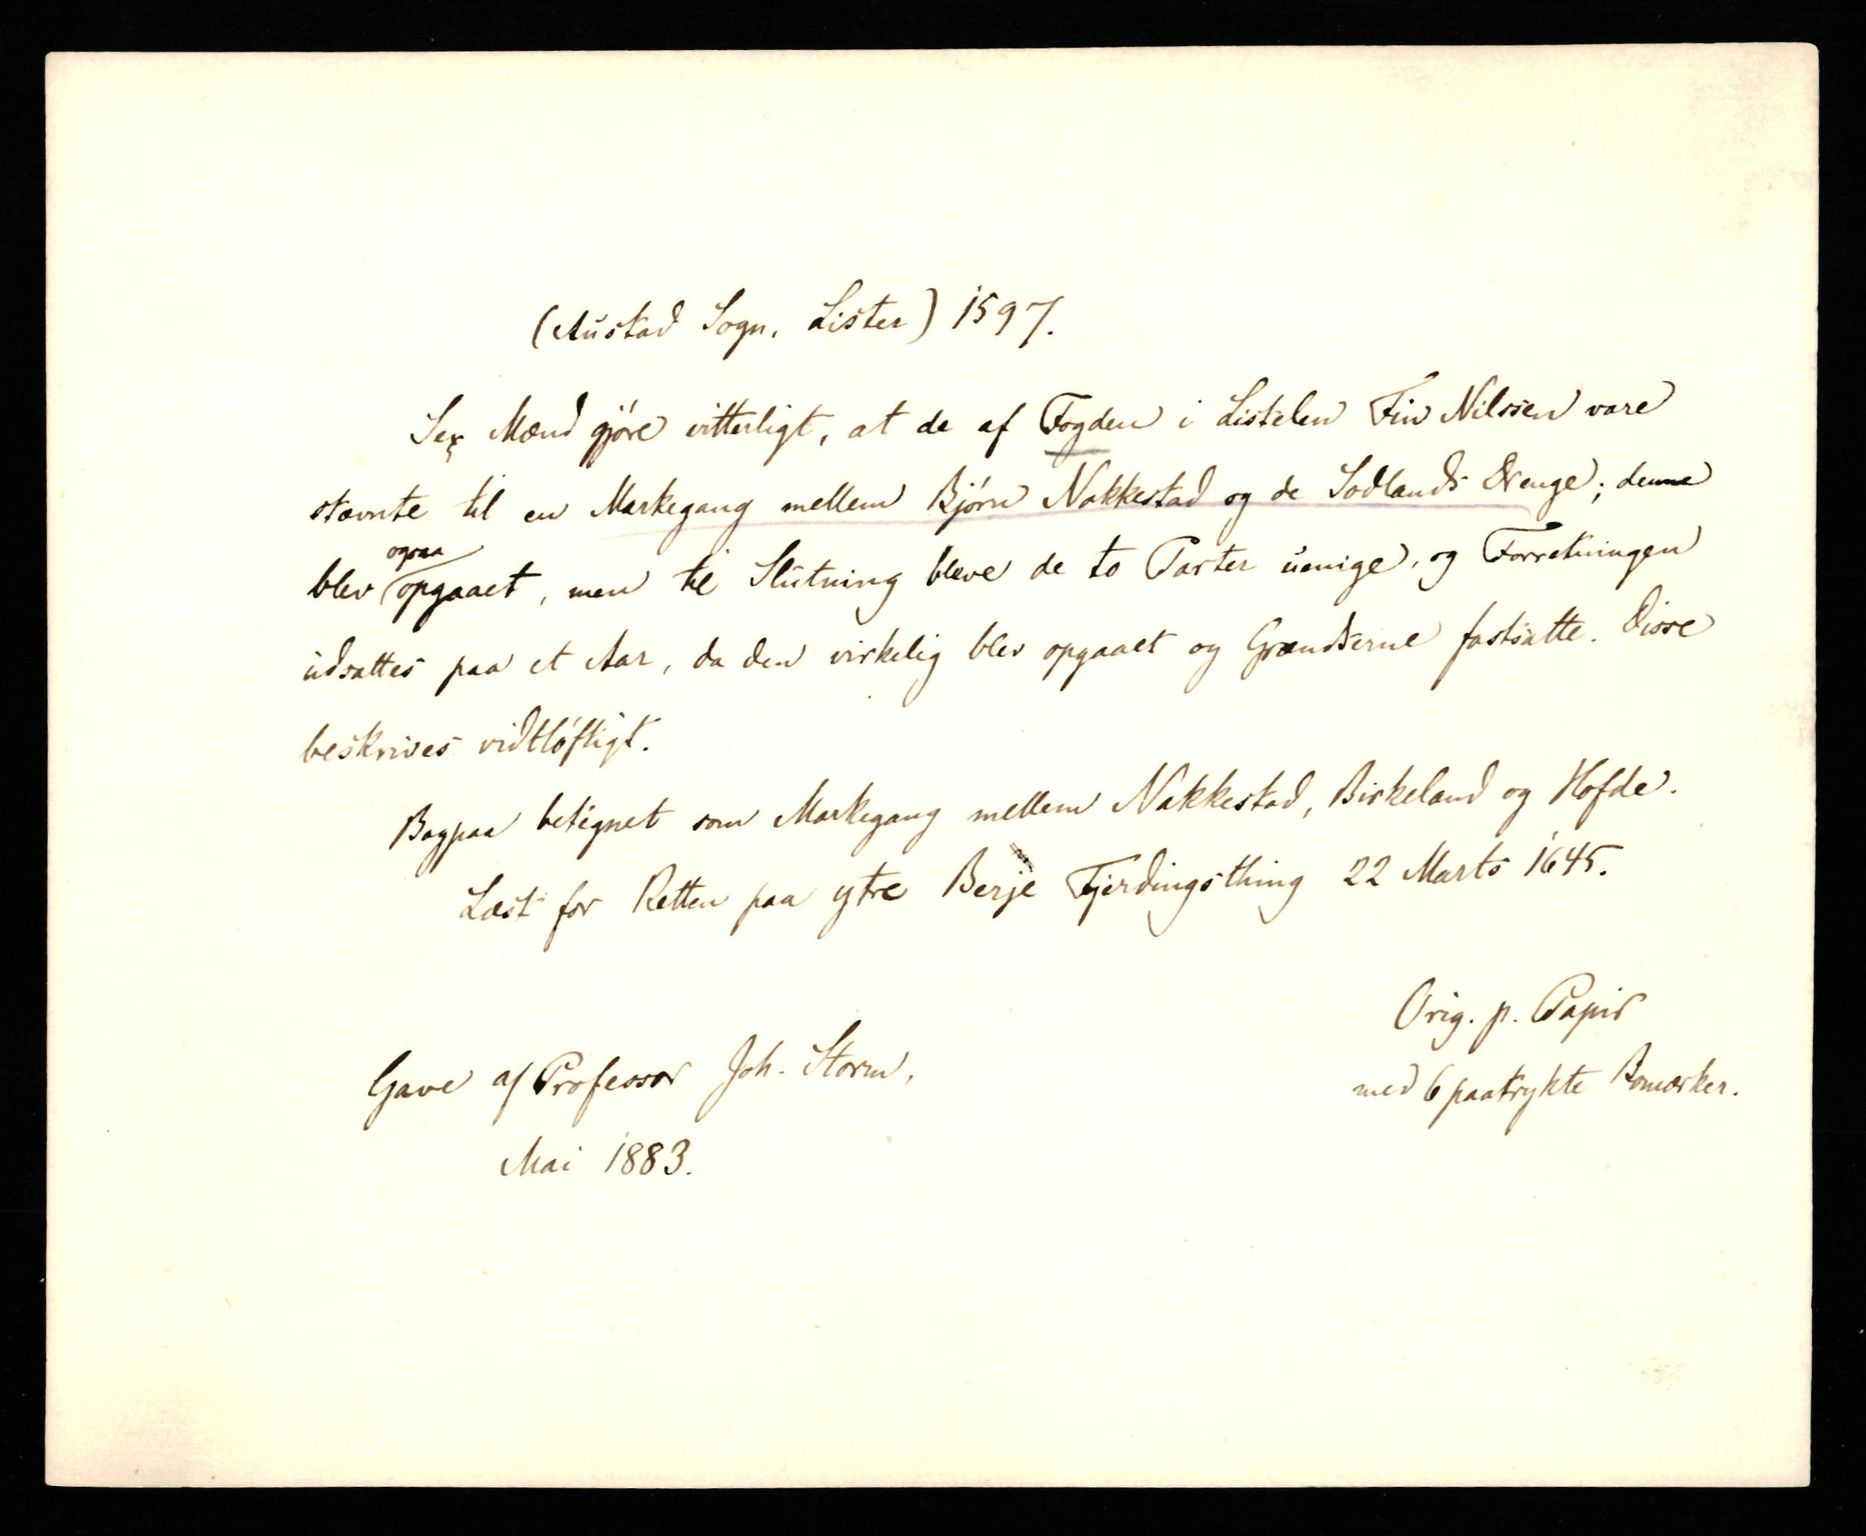 (Austad Sogn, Lister) 1597.
Sex Mænd gjöre vitterligt, at de af Fogden i Listelen Fin Nilssen vare
stævnte til en Markegang mellem Björn Nakkestad og de Sodlands Drenge; denne
blev ogsaa opgaaet, men til Slutning bleve de to Parter uenige, og Forretningen
udsattes paa et Aar, da den virkelig blev opgaaet og Grændserne fastsatte. Disse
beskrives vidtløftigt.
Bagpaa betegnet som Markegang mellem Nakkestad, Birkeland og Hofde.
Læst for Retten paa ytre Berje Fjerdingsthing 22 Marts 1645.
Orig. p. Papir
med 6 paatrykte Bomærker.
Gave af Professor Joh. Storm,
Mai 1883.